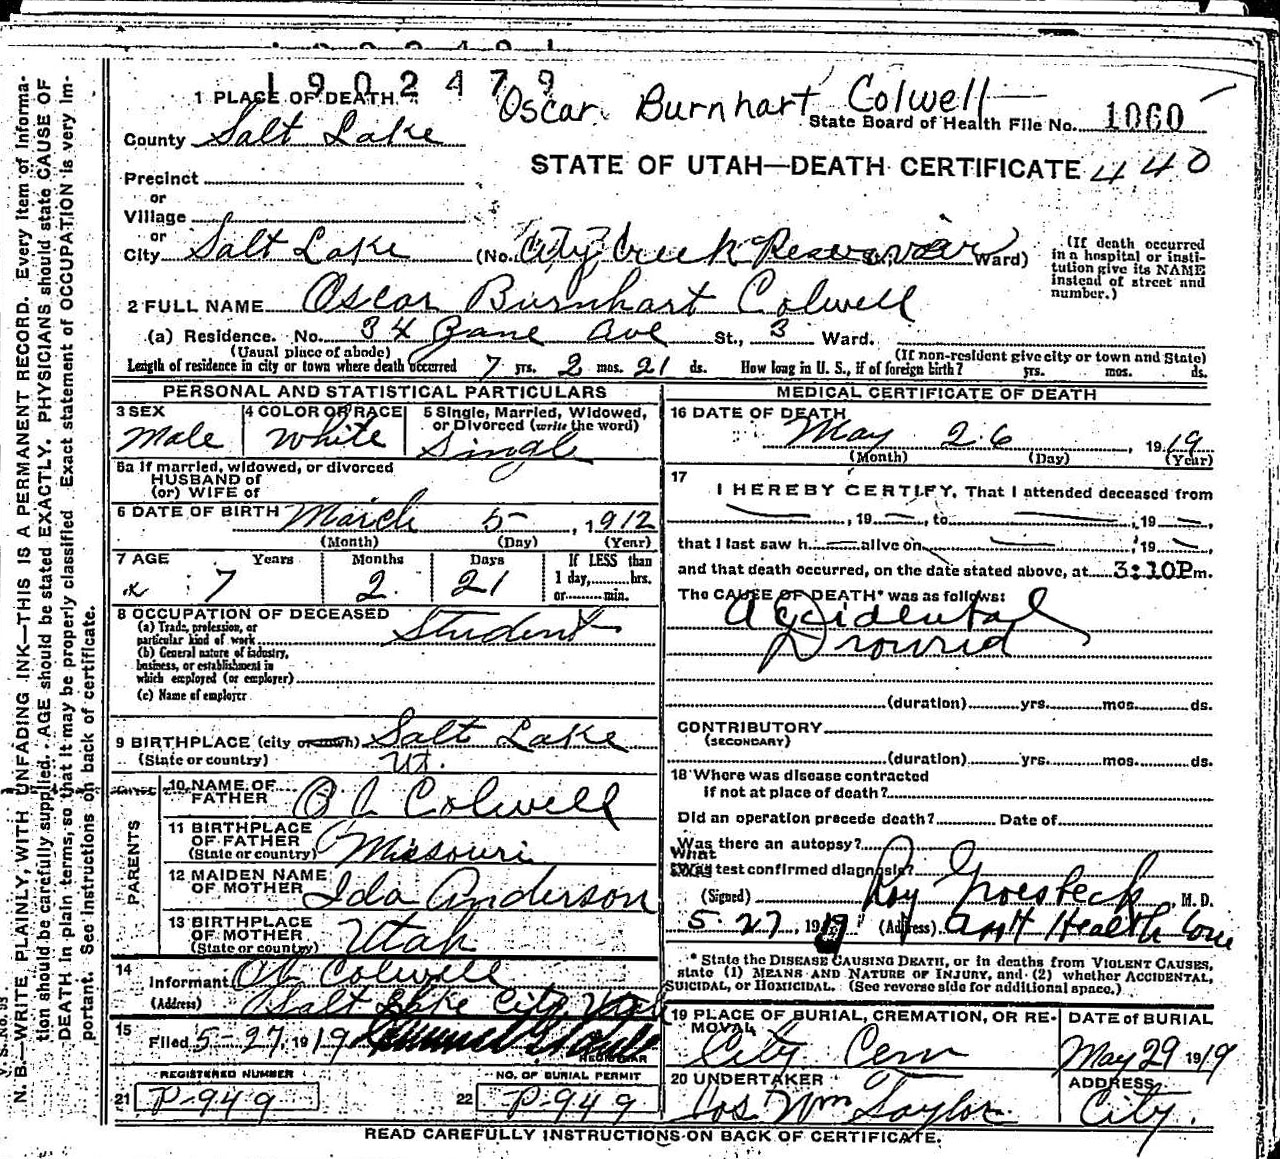 1902479
Oscar Burnhart Colwell
1 PLACE OF DEATH
State Board of Health File No. 1060
County Salt Lake
STATE OF UTAH—DEATH CERTIFICATE 440
Precinct
or
Village
or
City Salt Lake (No. City Creek Reservoir Ward)
(If death occurred in a hospital or insti-
tution give its NAME
instead of street and
number.)
2 FULL NAME Oscar Burnhart Colwell
(a) Residence. No. 34 Zane Ave St., 3 Ward.
(Usual place of abode)
(If non-resident give city or town and State)
Length of residence in city or town where death occurred 7 yrs. 2 mos. 21 ds. How long in U. S., if of foreign birth? yrs. mos. ds.
PERSONAL AND STATISTICAL PARTICULARS
3 SEX
Male
4 COLOR OR RACE
White
5 Single, Married, Widowed,
or Divorced (write the word)
Single
5a If married, widowed, or divorced
HUSBAND of
(or) WIFE of
6 DATE OF BIRTH March 5 , 1912
(Month) (Day) (Year)
7 AGE Years Months Days
7 2 21
If LESS than
1 day, hrs.
or min.
8 OCCUPATION OF DECEASED
(a) Trade, profession, or
particular kind of work Student
(b) General nature of industry,
business, or establishment in
which employed (or employer)
(c) Name of employer
9 BIRTHPLACE (city or town) Salt Lake
(State or country) Ut.
PARENTS
10 NAME OF
FATHER O L Colwell
11 BIRTHPLACE
OF FATHER
(State or country) Missouri
12 MAIDEN NAME
OF MOTHER Ida Anderson
13 BIRTHPLACE
OF MOTHER
(State or country) Utah
14
Informant O L Colwell
(Address) Salt Lake City Utah
15
Filed 5-27, 1919
REGISTRAR
REGISTERED NUMBER
21 P-949
NO. OF BURIAL PERMIT
22 P-949
MEDICAL CERTIFICATE OF DEATH
16 DATE OF DEATH
May 26 , 1919
(Month) (Day) (Year)
17
I HEREBY CERTIFY, That I attended deceased from
, 19 , to , 19 ,
that I last saw h alive on , 19 ,
and that death occurred, on the date stated above, at 3:10P m.
The CAUSE OF DEATH* was as follows:
Accidental
Drownid
(duration) yrs. mos. ds.
CONTRIBUTORY
(SECONDARY)
(duration) yrs. mos. ds.
18 Where was disease contracted
if not at place of death?
Did an operation precede death? Date of
Was there an autopsy?
What test confirmed diagnosis?
(Signed) Roy Groesbeck, M. D.
5-27, 1919 (Address) Asst Health Com
* State the DISEASE CAUSING DEATH, or in deaths from VIOLENT CAUSES,
state (1) MEANS AND NATURE OF INJURY, and (2) whether ACCIDENTAL,
SUICIDAL, or HOMICIDAL. (See reverse side for additional space.)
19 PLACE OF BURIAL, CREMATION, OR RE-
MOVAL
City Cem
DATE of BURIAL
May 29 1919
20 UNDERTAKER
Jos. Wm Taylor
ADDRESS
City.
READ CAREFULLY INSTRUCTIONS ON BACK OF CERTIFICATE.
N. B.—WRITE PLAINLY, WITH UNFADING INK—THIS IS A PERMANENT RECORD. Every item of informa-
tion should be carefully supplied. AGE should be stated EXACTLY. PHYSICIANS should state CAUSE OF
DEATH in plain terms, so that it may be properly classified. Exact statement of OCCUPATION is very im-
portant. See instructions on back of certificate.